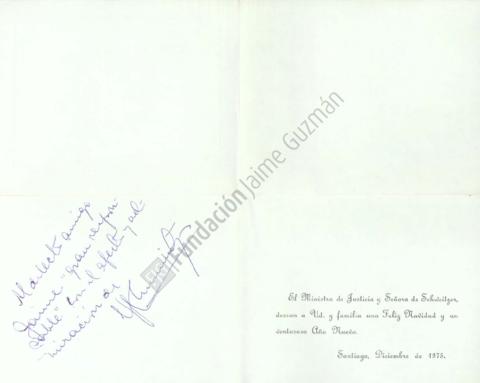 Mi dilecto amigo
Jaime "gran respon-
sable" con el afecto y ad-
miración de
Fundación Jaime Guzmán
El Ministro de Justicia y Señora de Schweitzer,
desean a Ud. y familia una Feliz Navidad y un
venturoso Año Nuevo.
Santiago, Diciembre de 1975.